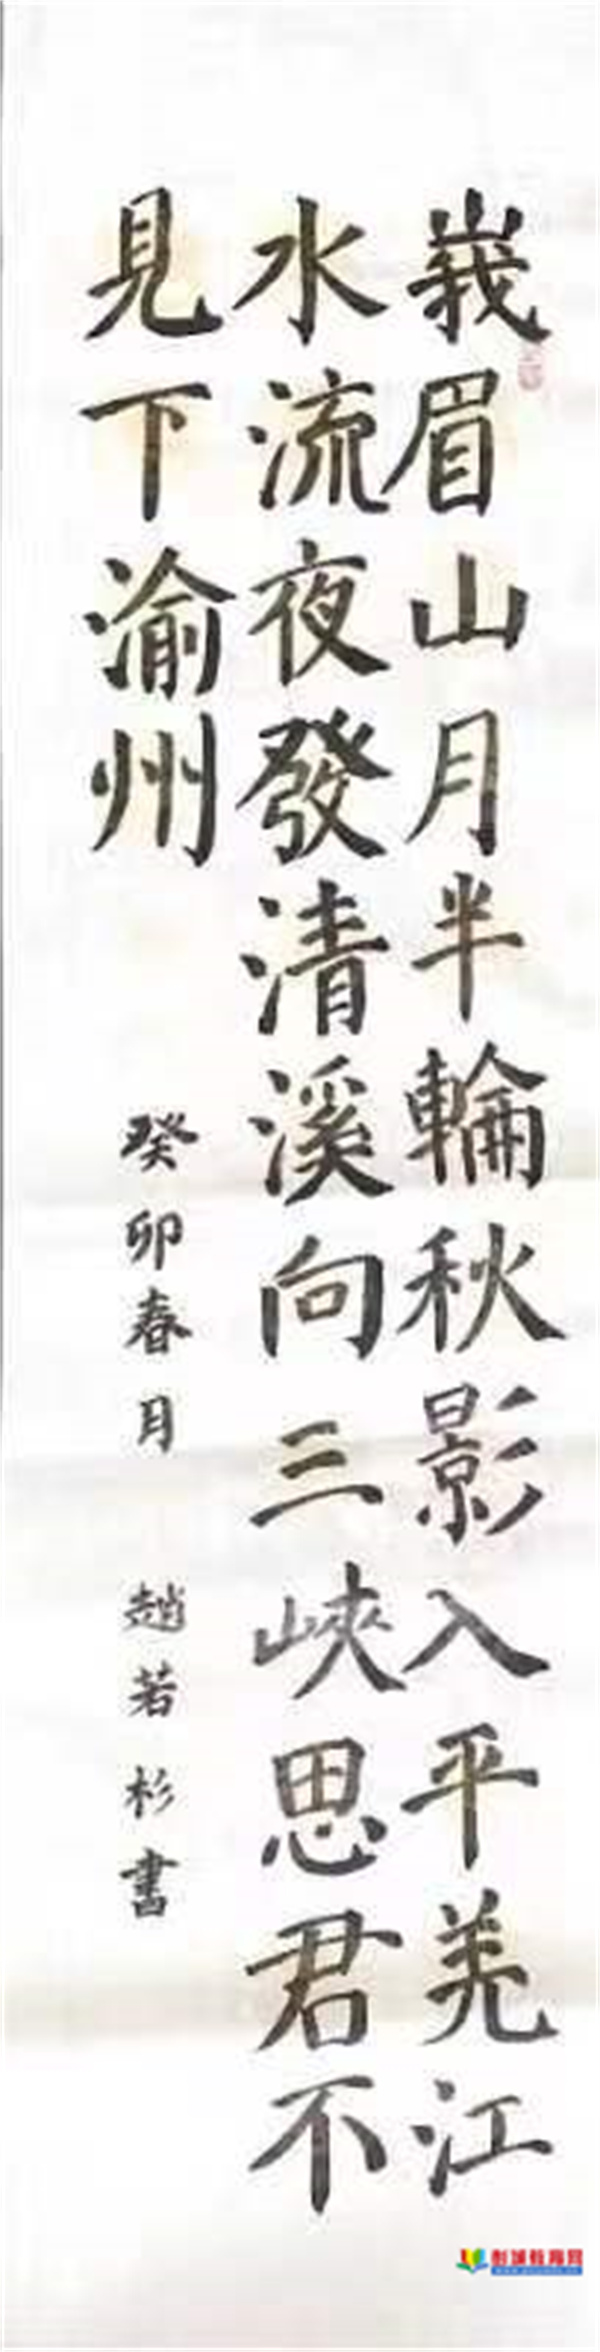 峩眉山月半輪秋影入平羌江
水流夜發清溪向三峽思君不
見下渝州
癸卯春月 趙若杉書